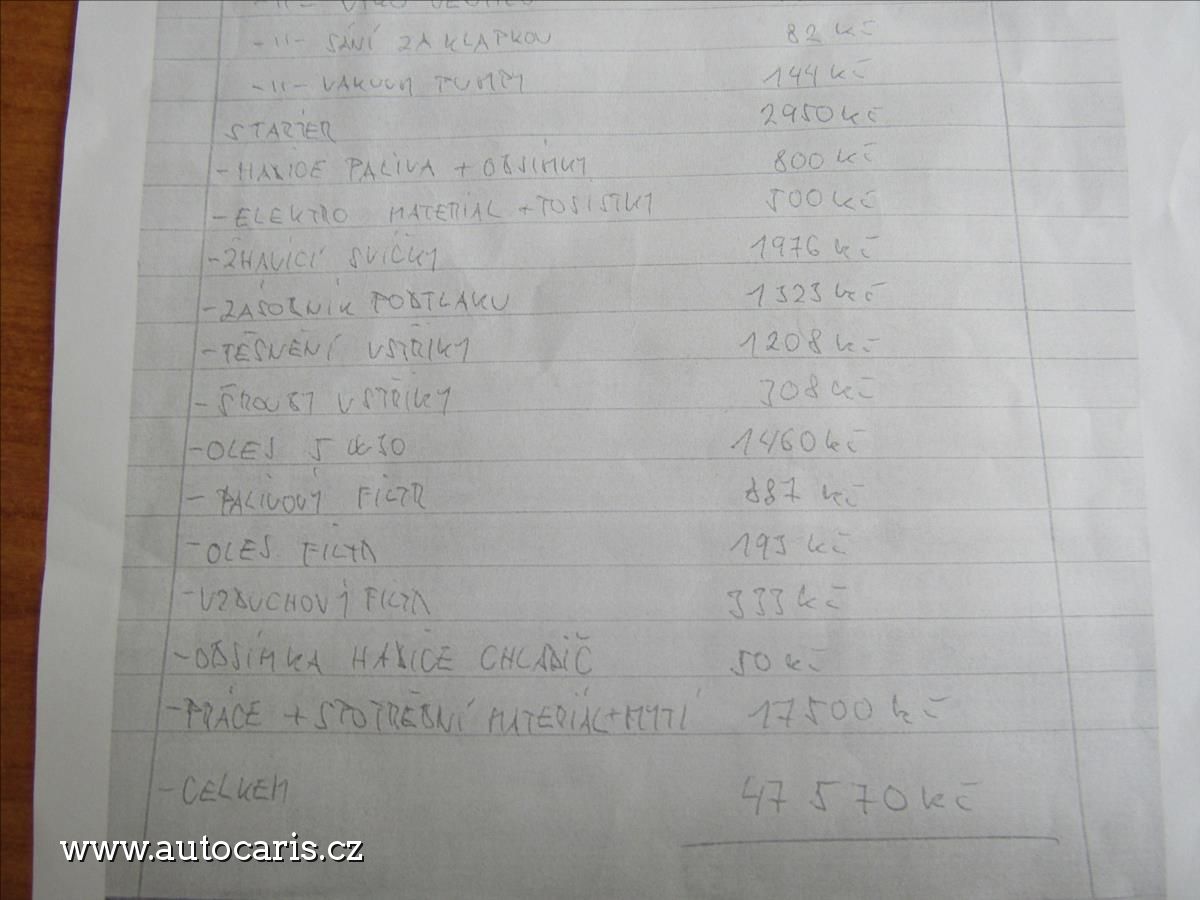 -11- SÁNÍ ZA KLAPKOU 82 Kč
-11- VAKUUM PUMPY 144 Kč
STARTER 2950 Kč
- HADICE PALIVA + OBJÍMKY 800 Kč
- ELEKTRO MATERIÁL + POJISTKY 500 Kč
- ŽHAVÍCÍ SVÍČKY 1976 Kč
- ZÁSOBNÍK PODTLAKU 1323 Kč
- TĚSNĚNÍ VSTŘIKY 1208 Kč
- ŠROUBY VSTŘIKY 308 Kč
- OLEJ 5W30 1460 Kč
- PALIVOVÝ FILTR 887 Kč
- OLEJ. FILTR 193 Kč
- VZDUCHOVÝ FILTR 333 Kč
- OBJÍMKA HADICE CHLADIČ 50 Kč
- PRÁCE + SPOTŘEBNÍ MATERIÁL + MYTÍ 17500 Kč
- CELKEM 47 570 Kč
www.autocaris.cz